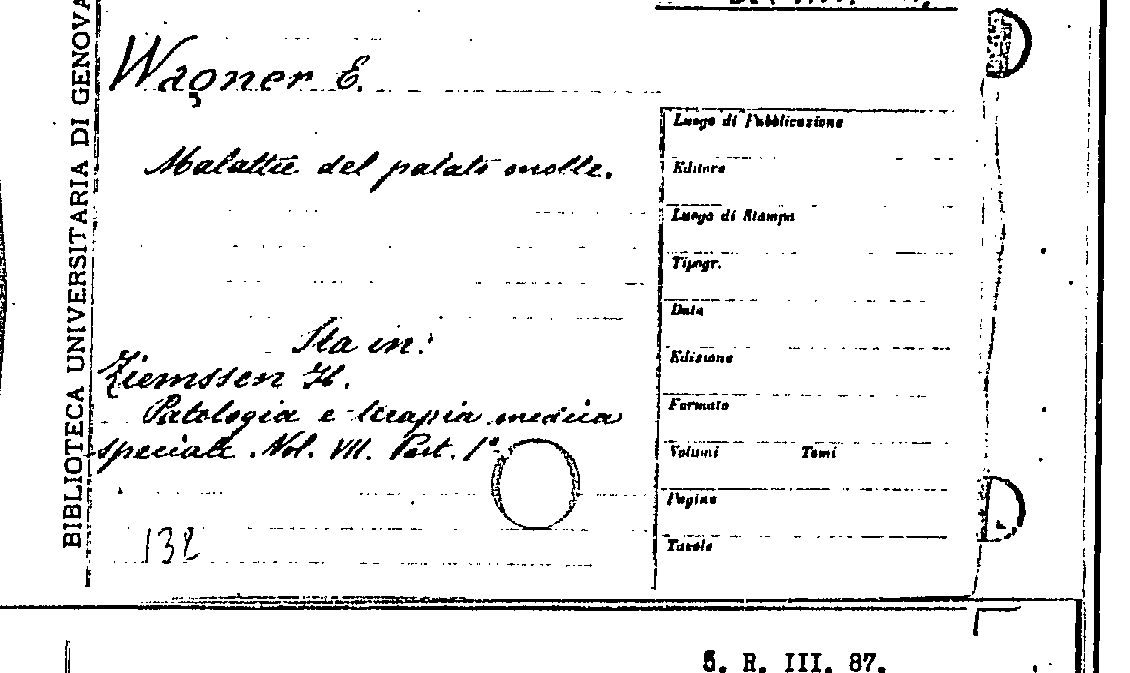 BIBLIOTECA UNIVERSITARIA DI GENOVA
Wagner E.
Malattie del palato molle.
Sta in:
Ziemssen H.
Patologia e terapia medica
speciale. Vol. VII. Part. 1ª
132
Luogo di Pubblicazione
Editore
Luogo di Stampa
Tipogr.
Data
Edizione
Formato
Volumi Tomi
Pagine
Tavole
5. R. III. 87.